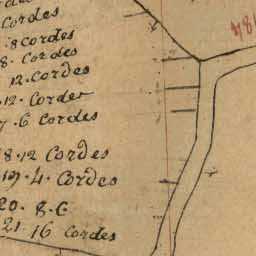 Cordes
8 cordes
8. Cordes
12. Cordes
12. Cordes
7. 6 Cordes
8. 12 Cordes
19. 4. Cordes
20. 8. C
21. 16 Cordes